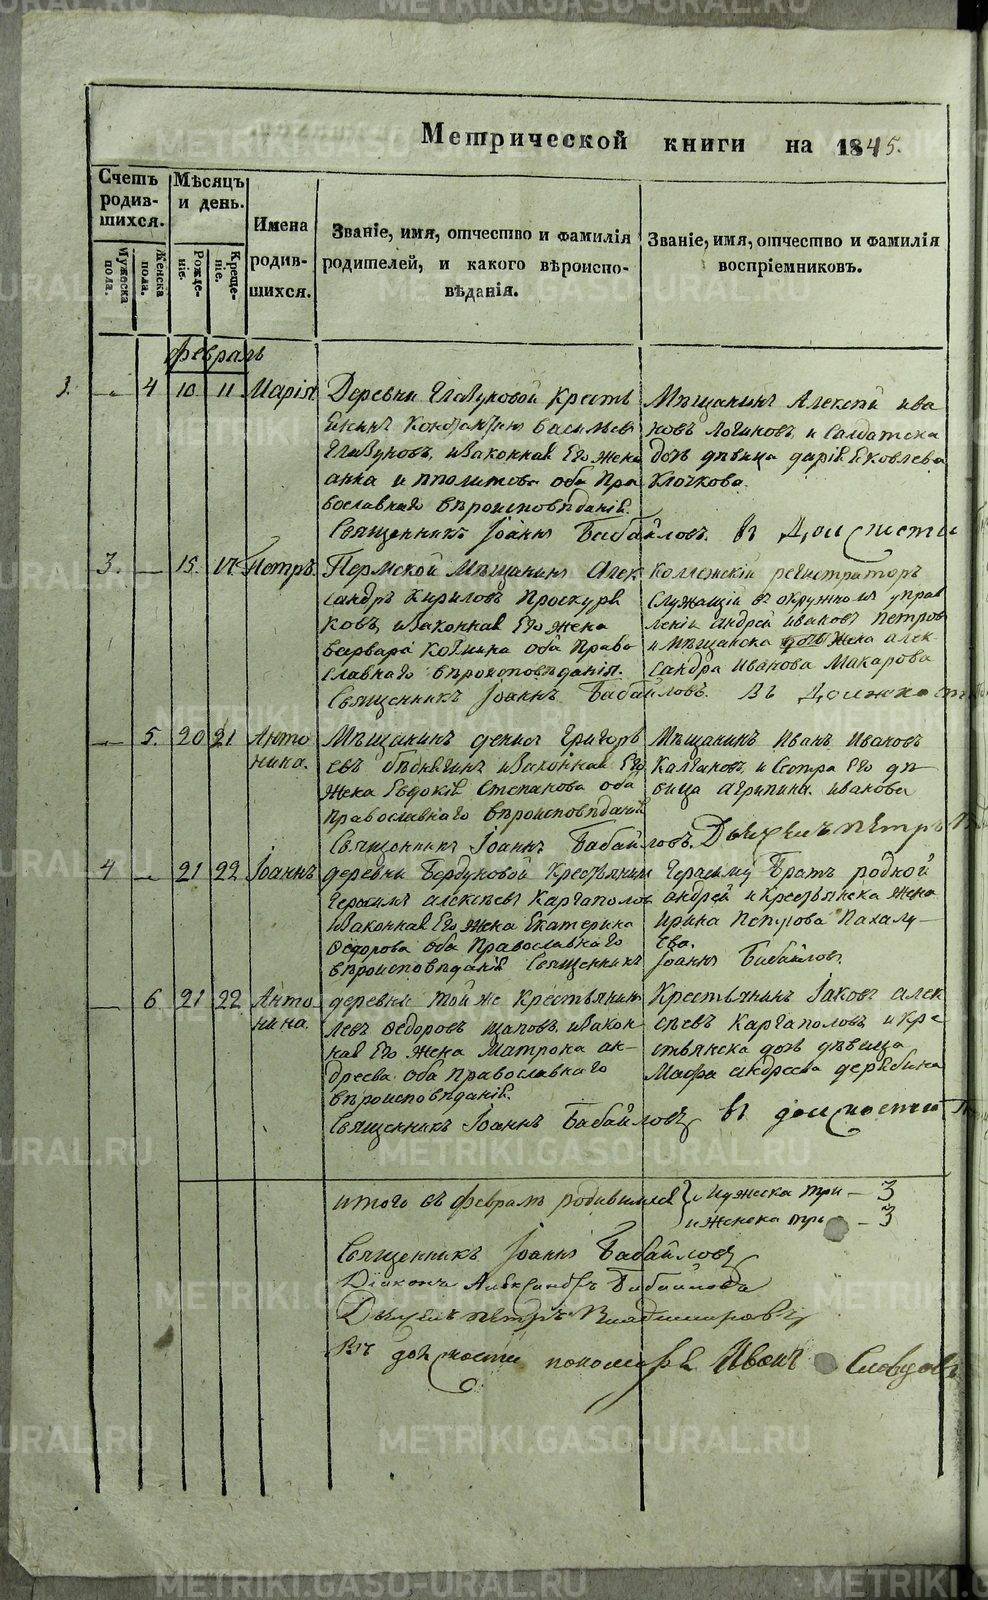 Метрической книги на 1845.
Счетъ родив-шихся.
Мужеска пола.
Женска пола.
Мѣсяцъ и день.
Рожде-ніе.
Креще-ніе.
Имена родив-шихся.
Званіе, имя, отчество и фамилія родителей, и какого вѣроиспо-вѣданія.
Званіе, имя, отчество и фамилія воспріемниковъ.
февраль
3.
4 10 11 Марія
Деревни Глазуновой Кресть
янинъ Константинъ Васильевъ
Глазуновъ, и Законная Его жена
анна и пполитова оба Пра
вославнаго вѣроисповѣданія.
Священникъ Іоаннъ Бабайловъ.
Мѣщанинъ Алексѣй ива
новъ Логиновъ, и Салдатска
дочь дѣвица дарія Яковлева
Клочкова.
3. 15. 17. Петръ.
Пермской Мѣщанинъ Алек
сандръ Кириловъ Проскуря
ковъ, и Законная Его жена
варвара козмина оба Право
славнаго вѣроисповѣданія.
Священникъ Іоаннъ Бабайловъ.
Коллежскій регистраторъ
Служащій въ окружномъ управ
леніи андрей ивановъ Петров
и мѣщанска дочь жена алек
сандра Иванова Макарова
Въ Должност
5. 20 21 Анто
нина.
Мѣщанинъ денисъ григорь
евъ бѣднягинъ и Законная Его
жена Евдокія Степанова оба
Православнаго вѣроисповѣданія
Священникъ Іоаннъ Бабайловъ.
Мѣщанинъ Иванъ Ивановъ
Калгановъ, и Сестра Его дѣ
вица агрипина иванова
Дьячекъ Петръ
4 21 22 Іоаннъ
деревни Бердуновой Крестьянинъ
герасимъ алексѣевъ Каргаполов
и Законная Его жена Екатерина
Ѳедорова оба Православнаго
вѣроисповѣданія Священникъ
Герасиму Братъ родной
андрей и крестьянска жена
ирина Петрова Пахалу-
ева.
Іоаннъ Бабайловъ
6 21 22 Анто
нина.
деревни той же крестьянинъ
левъ Ѳедоровъ щаповъ, и Закон
ная Его жена Матрона ан-
дреева оба Православнаго
вѣроисповѣданія.
Священникъ Іоаннъ Бабайловъ
Крестьянинъ Іаковъ алек
сѣевъ Каргаполовъ, и кре
стьянска дочь дѣвица
Марфа андреева дерябина
въ должности
итого въ февралѣ родившихся
Мужеска три – 3
и женска три – 3
Священникъ Іоаннъ Бабайловъ
Діаконъ Александръ Бабайловъ
Дьячекъ Петръ Владимировъ
Въ должности пономаря Иванъ Словцовъ
METRIKI.GASO-URAL.RU